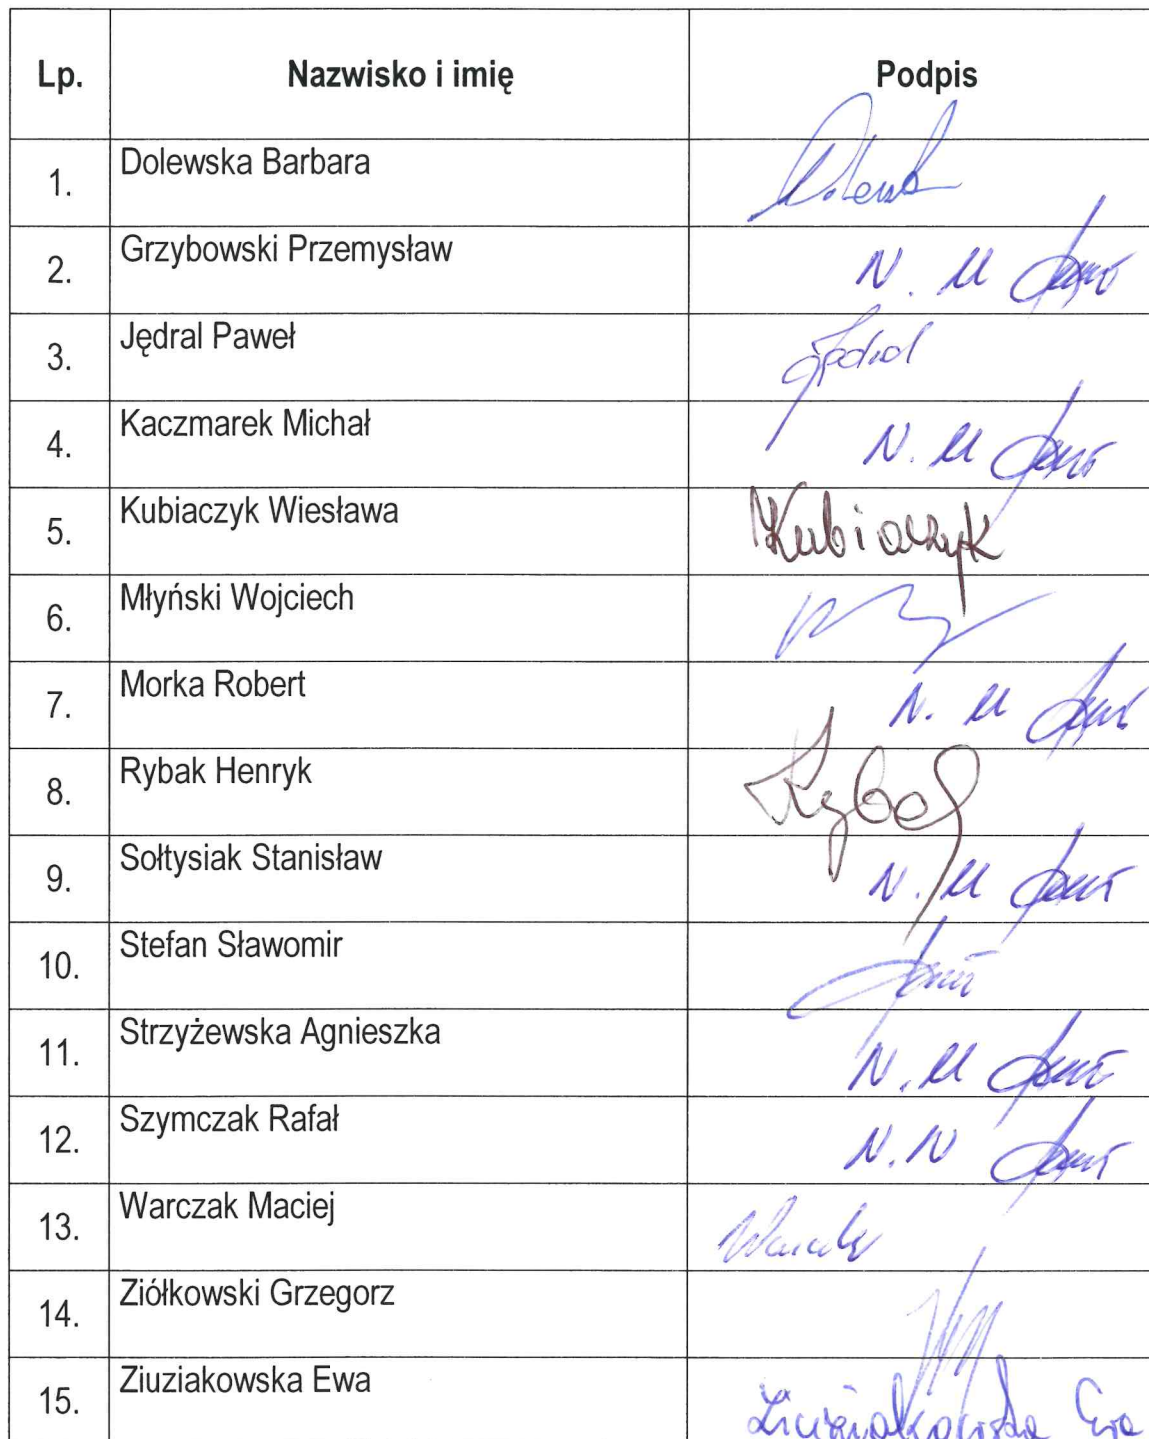 Lp. Nazwisko i imię Podpis
1. Dolewska Barbara
2. Grzybowski Przemysław N. M
3. Jędral Paweł Jędral
4. Kaczmarek Michał N. M
5. Kubiaczyk Wiesława Kubiaczyk
6. Młyński Wojciech
7. Morka Robert N. M
8. Rybak Henryk Rybak
9. Sołtysiak Stanisław N. M
10. Stefan Sławomir
11. Strzyżewska Agnieszka N. M
12. Szymczak Rafał N. N
13. Warczak Maciej
14. Ziółkowski Grzegorz
15. Ziuziakowska Ewa Ziuziakowska Ewa